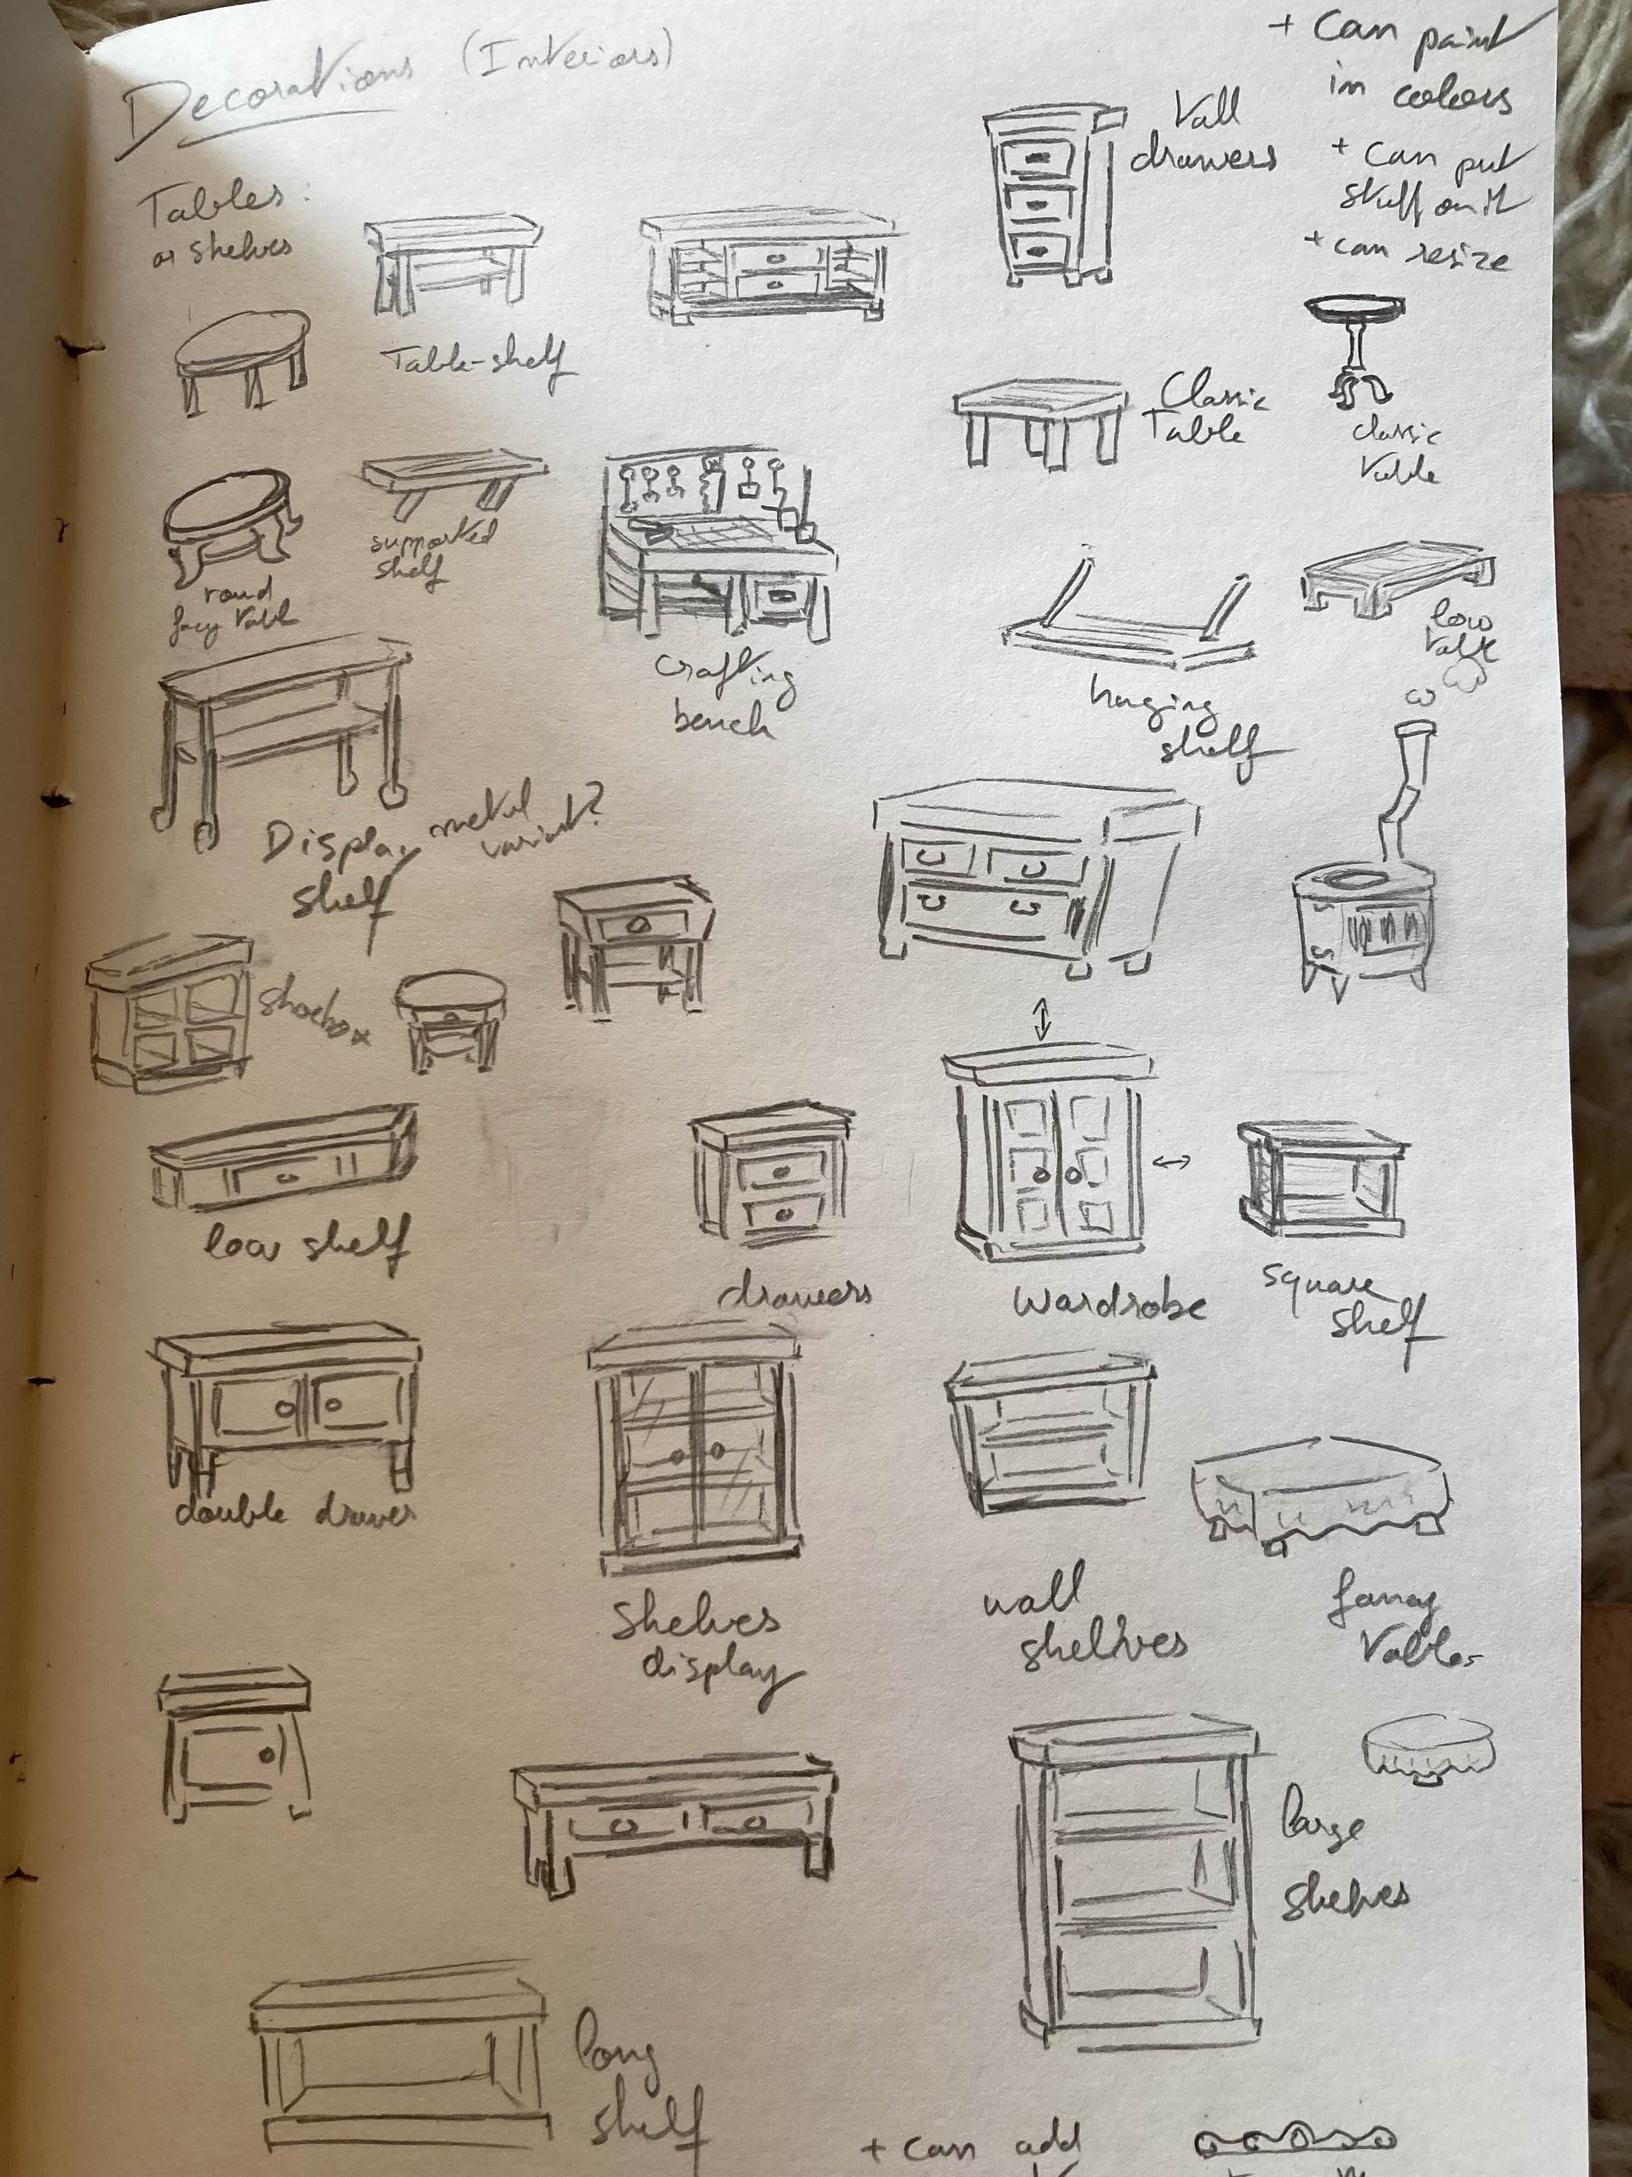 Decorations (Interiors)
+ can paint
in colors
+ can put
stuff on it
+ can resize
Tables:
or shelves
Tall
drawers
Table-shelf
Classic
Table
classic
table
supported
shelf
round
facy table
crafting
bench
hanging
shelf
low
table
Display
shelf
metal
variant?
shoebox
low shelf
drawers
wardrobe
square
shelf
double drawer
shelves
display
wall
shelves
fancy
tables
large
shelves
long
shelf
+ can add